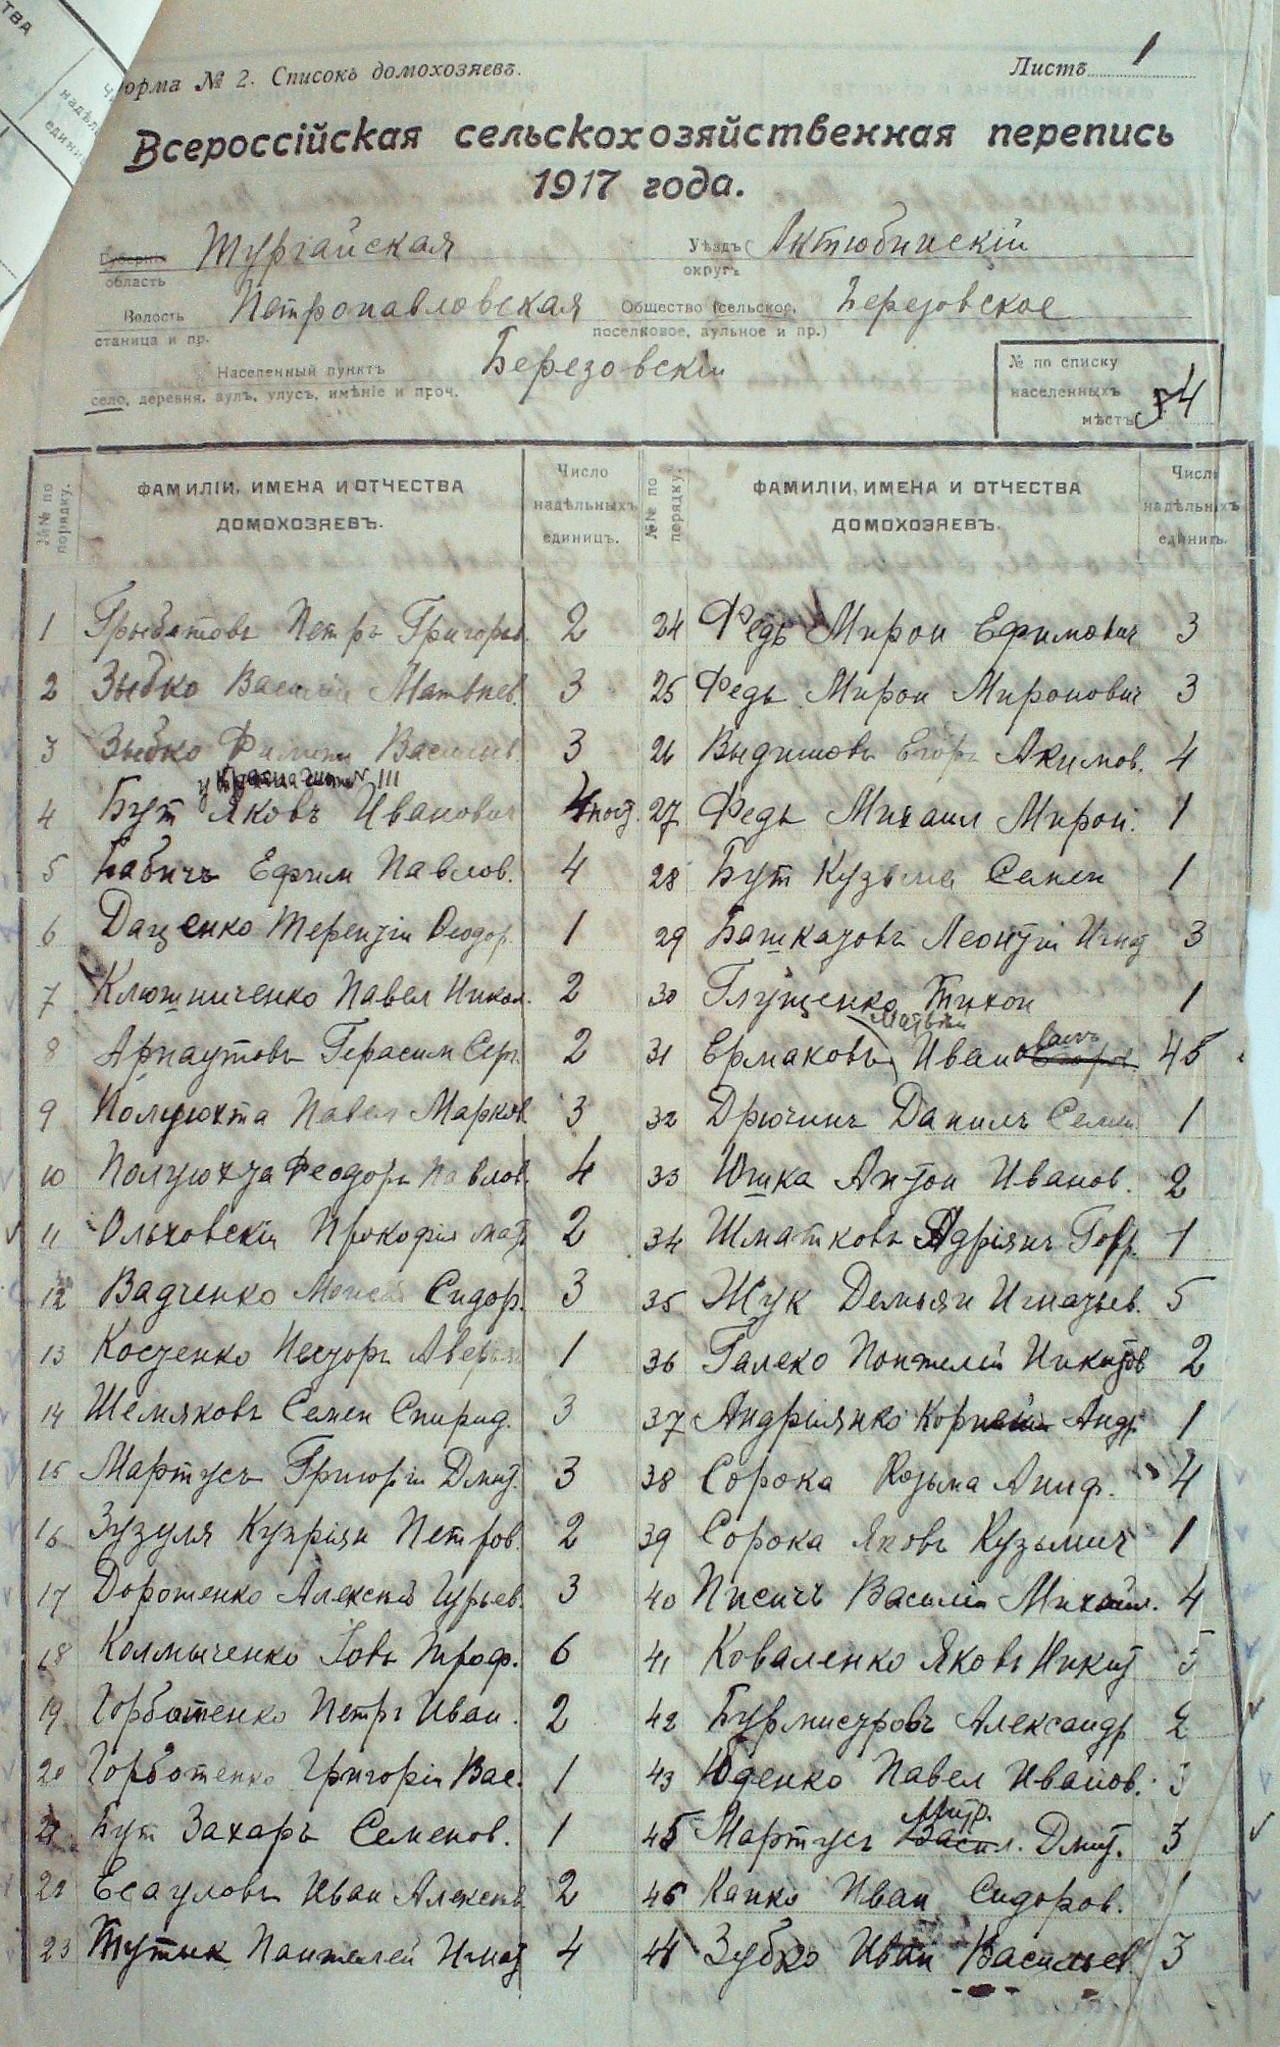 Форма № 2. Списокъ домохозяевъ.
Листъ 1
Всероссійская сельскохозяйственная перепись
1917 года.
Губернія Тургайская Уѣздъ( Актюбинскій
область округъ
Волость Петропавловская Общество (сельское, Березовское
станица и пр. поселковое, аульное и пр.)
Населенный пунктъ Березовскій
село, деревня, аулъ, улусъ, имѣніе и проч.
№ по списку
населенныхъ
мѣстъ 54
№№ по порядку. ФАМИЛІИ, ИМЕНА И ОТЧЕСТВА ДОМОХОЗЯЕВЪ. Число надѣльныхъ единицъ.
№№ по порядку. ФАМИЛІИ, ИМЕНА И ОТЧЕСТВА ДОМОХОЗЯЕВЪ. Число надѣльныхъ единицъ.
1 Грыбатовъ Петръ Григорьев. 2
2 Зыбко Василій Матвѣев. 3
3 Зыбко Филипп Васильев. 3
4 Бут Яковъ Иванович 4
5 Бабичъ Ефим Павлов. 4
6 Даценко Терентій Феодор. 1
7 Клюшниченко Павел Никол. 2
8 Арнаутовъ Герасим Серг. 2
9 Полуюхта Павел Марков. 3
10 Полуюхта Феодоръ Павлов. 4
11 Ольховскій Прокофій Мат. 2
12 Вадченко Моисей Сидор. 3
13 Костенко Несторъ Аверьян 1
14 Шемяковъ Семен Спирид. 3
15 Мартусь Григорій Дмит. 3
16 Зузуля Купріян Петров. 2
17 Дорошенко Алексѣй Гурьев. 3
18 Колмыченко Іовъ Троф. 6
19 Горбатенко Петръ Иван. 2
20 Горботенко Григорій Вас. 1
21 Бут Захаръ Семенов. 1
22 Есауловъ Иван Алексѣев. 2
23 Тутык Пантелей Игнат 4
24 Федь Мирон Ефимович 3
25 Федь Мирон Миронович 3
26 Выдишовъ Егоръ Акимов. 4
27 Федь Михаил Мирон. 1
28 Бут Кузьма Семен 1
29 Башкатовъ Леонтій Игнат 3
30 Глущенко Тихон 1
Матвѣй
31 Ермаковъ Иванович 45
32 Дрючинъ Данилъ Семен 1
33 Юшка Антон Иванов. 2
34 Шматковъ Адріянъ 1
35 Жук Демьян Игнатьев. 5
36 Галеко Понтелей Никитов 2
37 Андріянко Корней Андр. 1
38 Сорока Козьма Аниф. 4
39 Сорока Яковъ Кузьмич 1
40 Писичъ Василій Михаил. 4
41 Коваленко Яковъ Никит 5
42 Бурмистровъ Александр 2
43 Юденко Павел Иванов. 3
Митр.
45 Мартусь Васил. Дмит. 3
46 Капко Иван Сидоров. 1
44 Зубко Иван Васильев 3